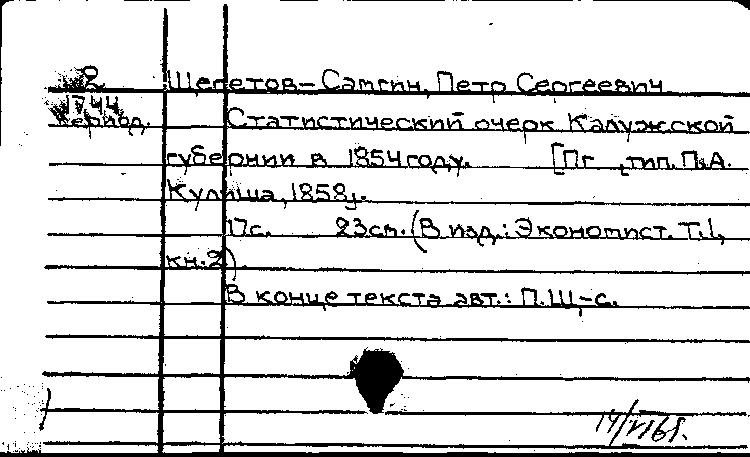 2 Щепетов-Самгин, Петр Сергеевич
1744
период. Статистический очерк Калужской
губернии в 1854 году. [Пг., тип. П.А.
Кулиша, 1858].
17с. 23см. (В изд.: Экономист. Т.1,
кн.2)
В конце текста авт.: П.Щ-с.
14/VI 61.